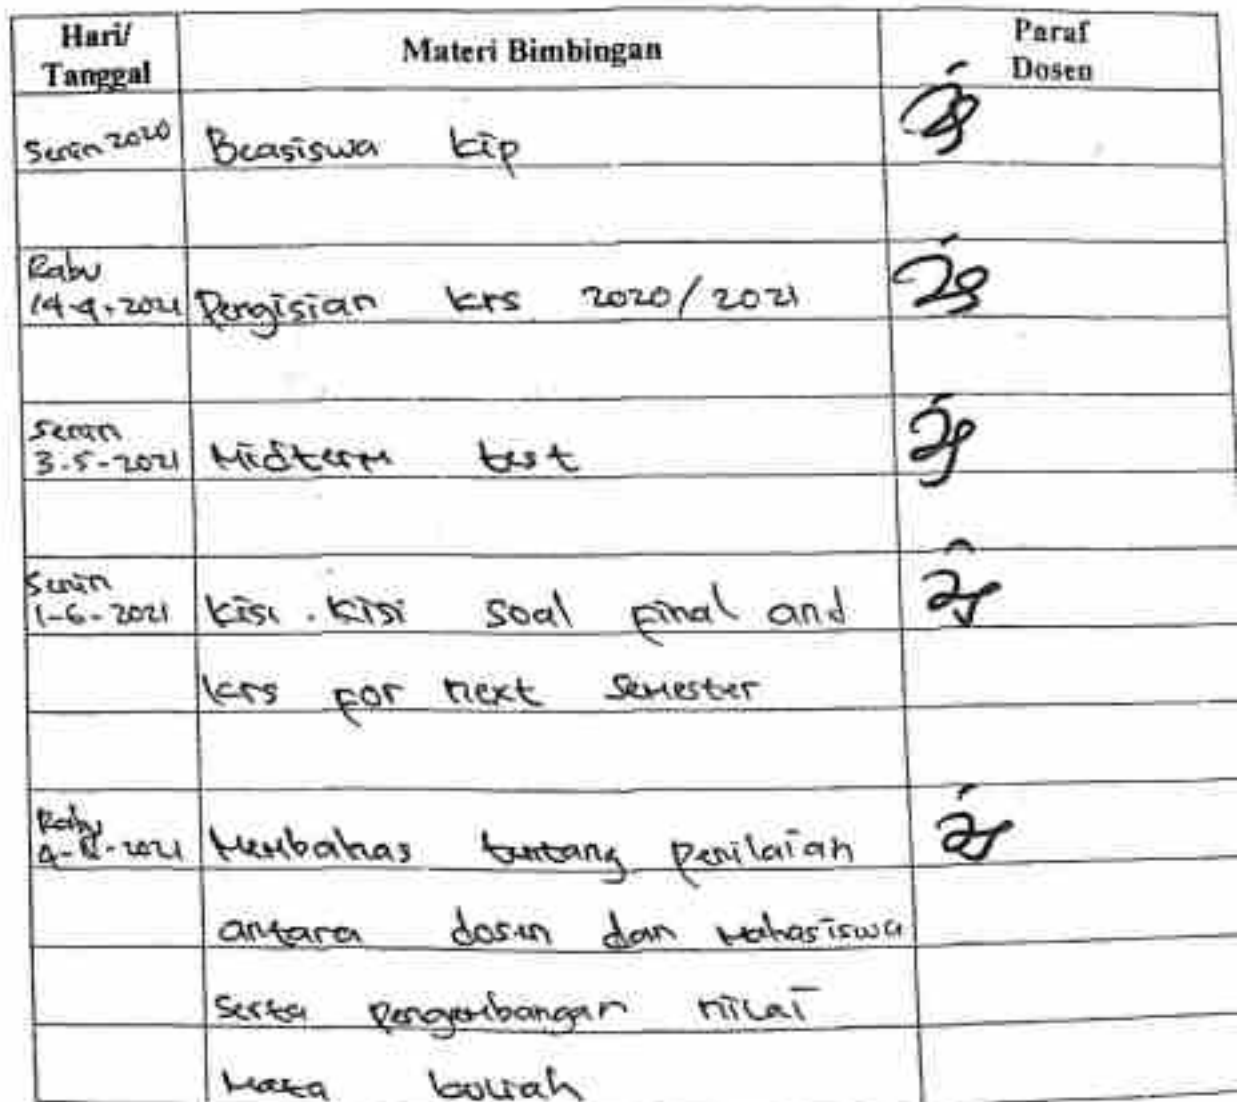 Hari/ Materi Bimbingan Paraf
Tanggal Dosen
Senin 2020 Beasiswa kip
Rabu
14-4-2021 Pengisian krs 2020/2021
Senin
3-5-2021 Midterm test
Senin
1-6-2021 kisi-kisi soal final and
krs for next semester
Rabu
2021 Membahas tentang penilaian
antara dosen dan Mahasiswa
Serta pengembangan nilai
Mata kuliah